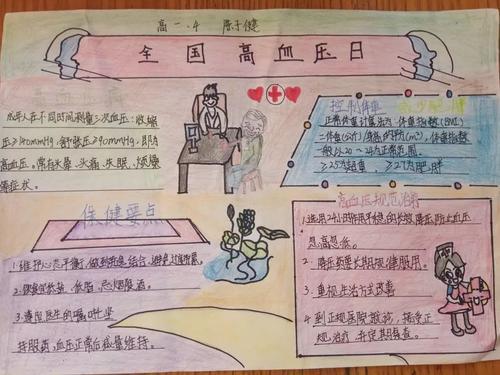 高一.4
全国高血压日
成年人在不同时间测量3次血压:收缩
压≥140mmHg,舒张压≥90mmHg,即为
高血压,常有头晕、头痛、失眠、烦躁
等症状。
控制体重 减少肥胖
正常体重计算法为:体重指数(BMI)
=体重(公斤)/身高的平方(m²),体重指数
一般以20~24为正常范围,
≥25为超重,≥27为肥胖
保健要点
1.维护心态平衡,做到劳逸结合,避免过度劳累。
3.遵照医生的嘱咐坚
持服药,血压正常后 维持。
高血压规范治疗
1.选用24小时作用平稳的长效降压药
忽高忽低。
2.降压药要长期规律服用。
3.重视生活方式改善
4.到正规医院就诊,接受正
规治疗,并定期复查。